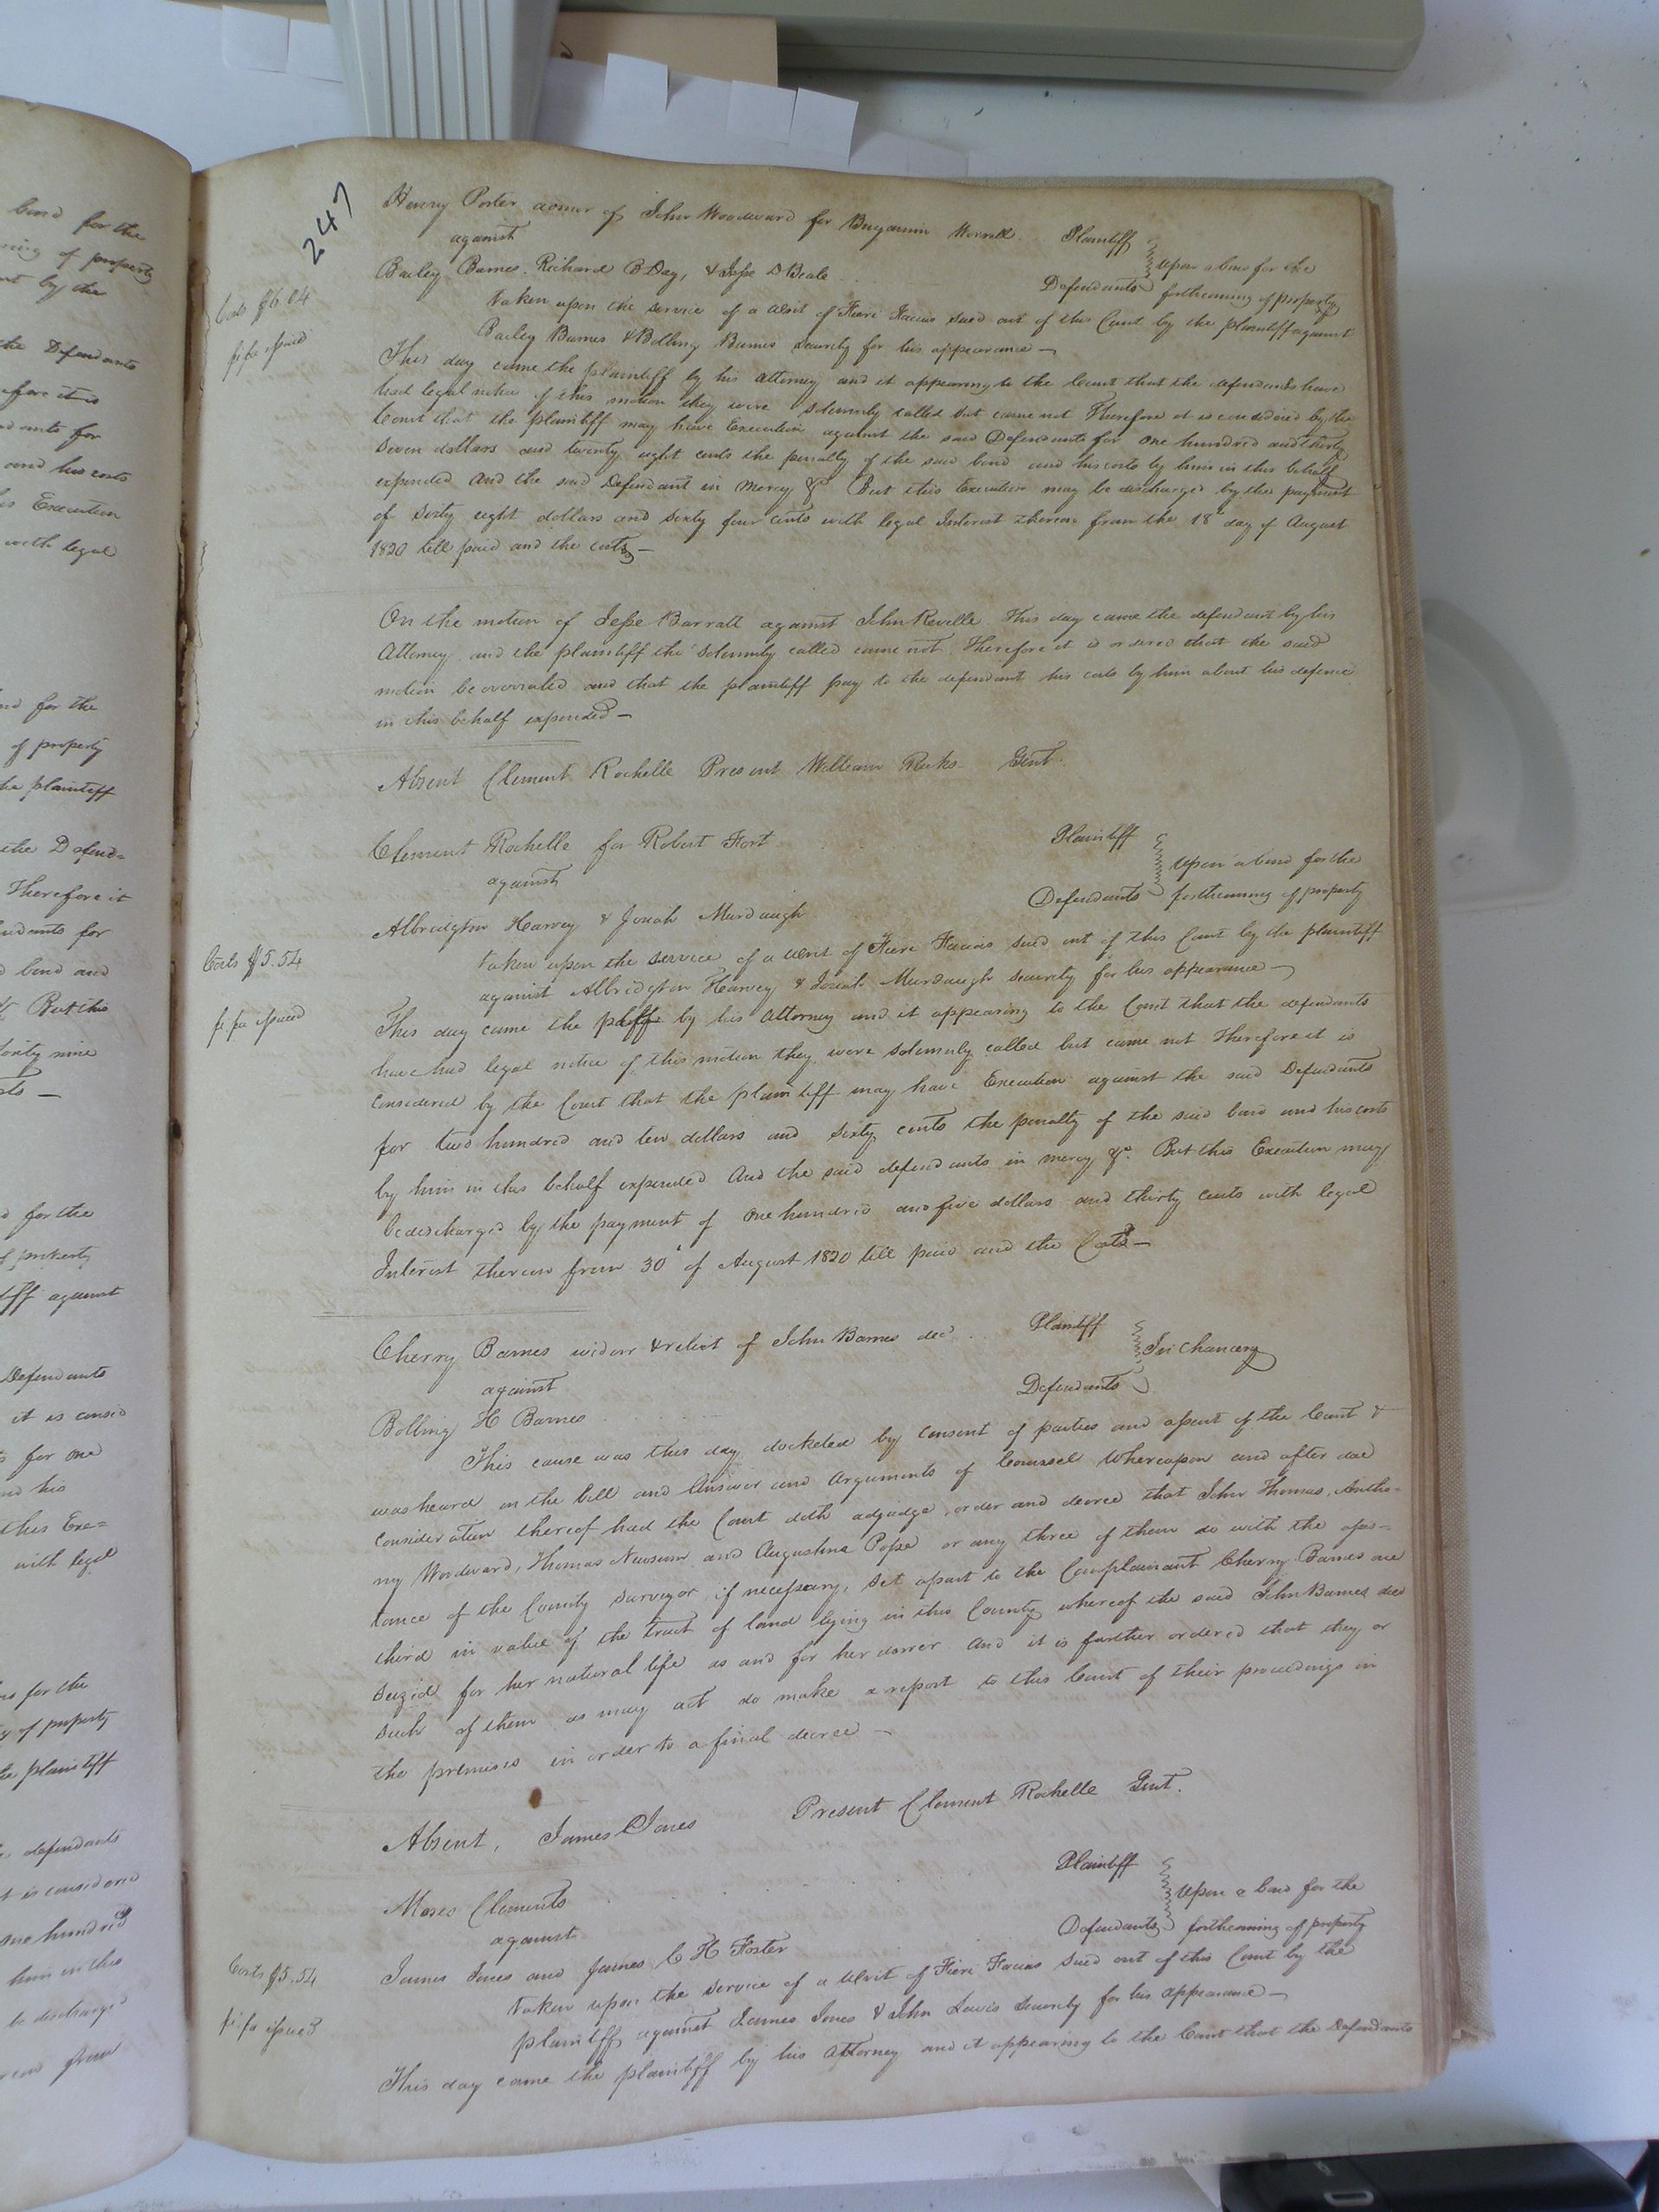 bond for the
of property
by the
the Defendants
Therefore it is
Defendants for
and his costs
Execution
with legal
bond for the
of property
the plaintiff
the Defend=
Therefore it
for
bond and
But this
forty nine
for the
of property
against
Defendants
it is consid
for one
and his
this Exe=
with legal
for the
of property
the plaintiff
defendants
it is considered
one hundred
him in this
be discharged
from
247
Henry Porter of John Woodward for Benjamin Worrell Plaintiff
against
upon a bond for the
Bailey Barnes, Richard B Day, & Jesse D Beale Defendants forthcoming of property
Costs $6.04
taken upon the service of a Writ of Fieri Facias sued out of this Court by the plaintiff against
fi fa issued
Bailey Barnes & Bolling Barnes security for his appearance —
This day came the plaintiff by his Attorney and it appearing to the Court that the defendants have
had legal notice of this motion they were solemnly called but came not Therefore it is considered by the
Court that the plaintiff may have Execution against the said Defendants for one hundred and thirty
Seven dollars and twenty eight cents the penalty of the said bond and his costs by him in this behalf
expended And the said Defendant in Mercy &c But this Execution may be discharged by the payment
of Sixty eight dollars and Sixty four cents with legal Interest thereon from the 18th day of August
1820 till paid and the costs —
On the motion of Jesse Barratt against John Reville This day came the defendant by his
Attorney and the plaintiff tho' solemnly called came not Therefore it is ordered that the said
motion be overruled and that the plaintiff pay to the defendant his costs by him about his defence
in this behalf expended —
Absent Clement Rochelle Present William Ricks Gent.
Clement Rochelle for Robert Fort Plaintiff
against
upon a bond for the
Albridgton Harvey & Josiah Murdaugh Defendants forthcoming of property
Costs $5.54
taken upon the service of a Writ of Fieri Facias sued out of this Court by the plaintiff
against Albridgton Harvey & Josiah Murdaugh security for his appearance —
fi. fa issued
This day came the pltff by his Attorney and it appearing to the Court that the defendants
have had legal notice of this motion they were solemnly called but came not Therefore it is
Considered by the Court that the plaintiff may have Execution against the said Defendants
for two hundred and ten dollars and sixty cents the penalty of the said bond and his costs
by him in this behalf expended And the said defendants in mercy &c. But this Execution may
be discharged by the payment of One hundred and five dollars and thirty cents with legal
Interest thereon from 30th of August 1820 till paid and the Costs —
Cherry Barnes widow & relict of John Barnes decd. Plaintiff
against
In Chancery
Bolling H Barnes Defendants
This cause was this day docketed by consent of parties and assent of the Court &
was heard on the bill and Answer and Arguments of Counsel Whereupon and after due
Consideration thereof had the Court doth adjudge, order and decree that John Thomas, Antho-
ny Woodward, Thomas Newsum and Augustine Pope or any three of them do with the assis-
tance of the County Surveyor, if necessary, set apart to the Complainant Cherry Barnes one
third in value of the tract of land lying in this County whereof the said John Barnes died
Seized for her natural life as and for her dower And it is further ordered that they or
such of them as may act do make a report to this Court of their proceedings in
the premises in order to a final decree —
Absent, James Jones Present Clement Rochelle Gent.
Moses Clements Plaintiff
against
Upon a bond for the
James Jones and James C H Foster Defendants forthcoming of property
Costs $5.54
taken upon the service of a Writ of Fieri Facias sued out of this Court by the
fi. fa issued
plaintiff against James Jones & John Lewis Security for his appearance —
This day came the plaintiff by his Attorney and it appearing to the Court that the Defendants